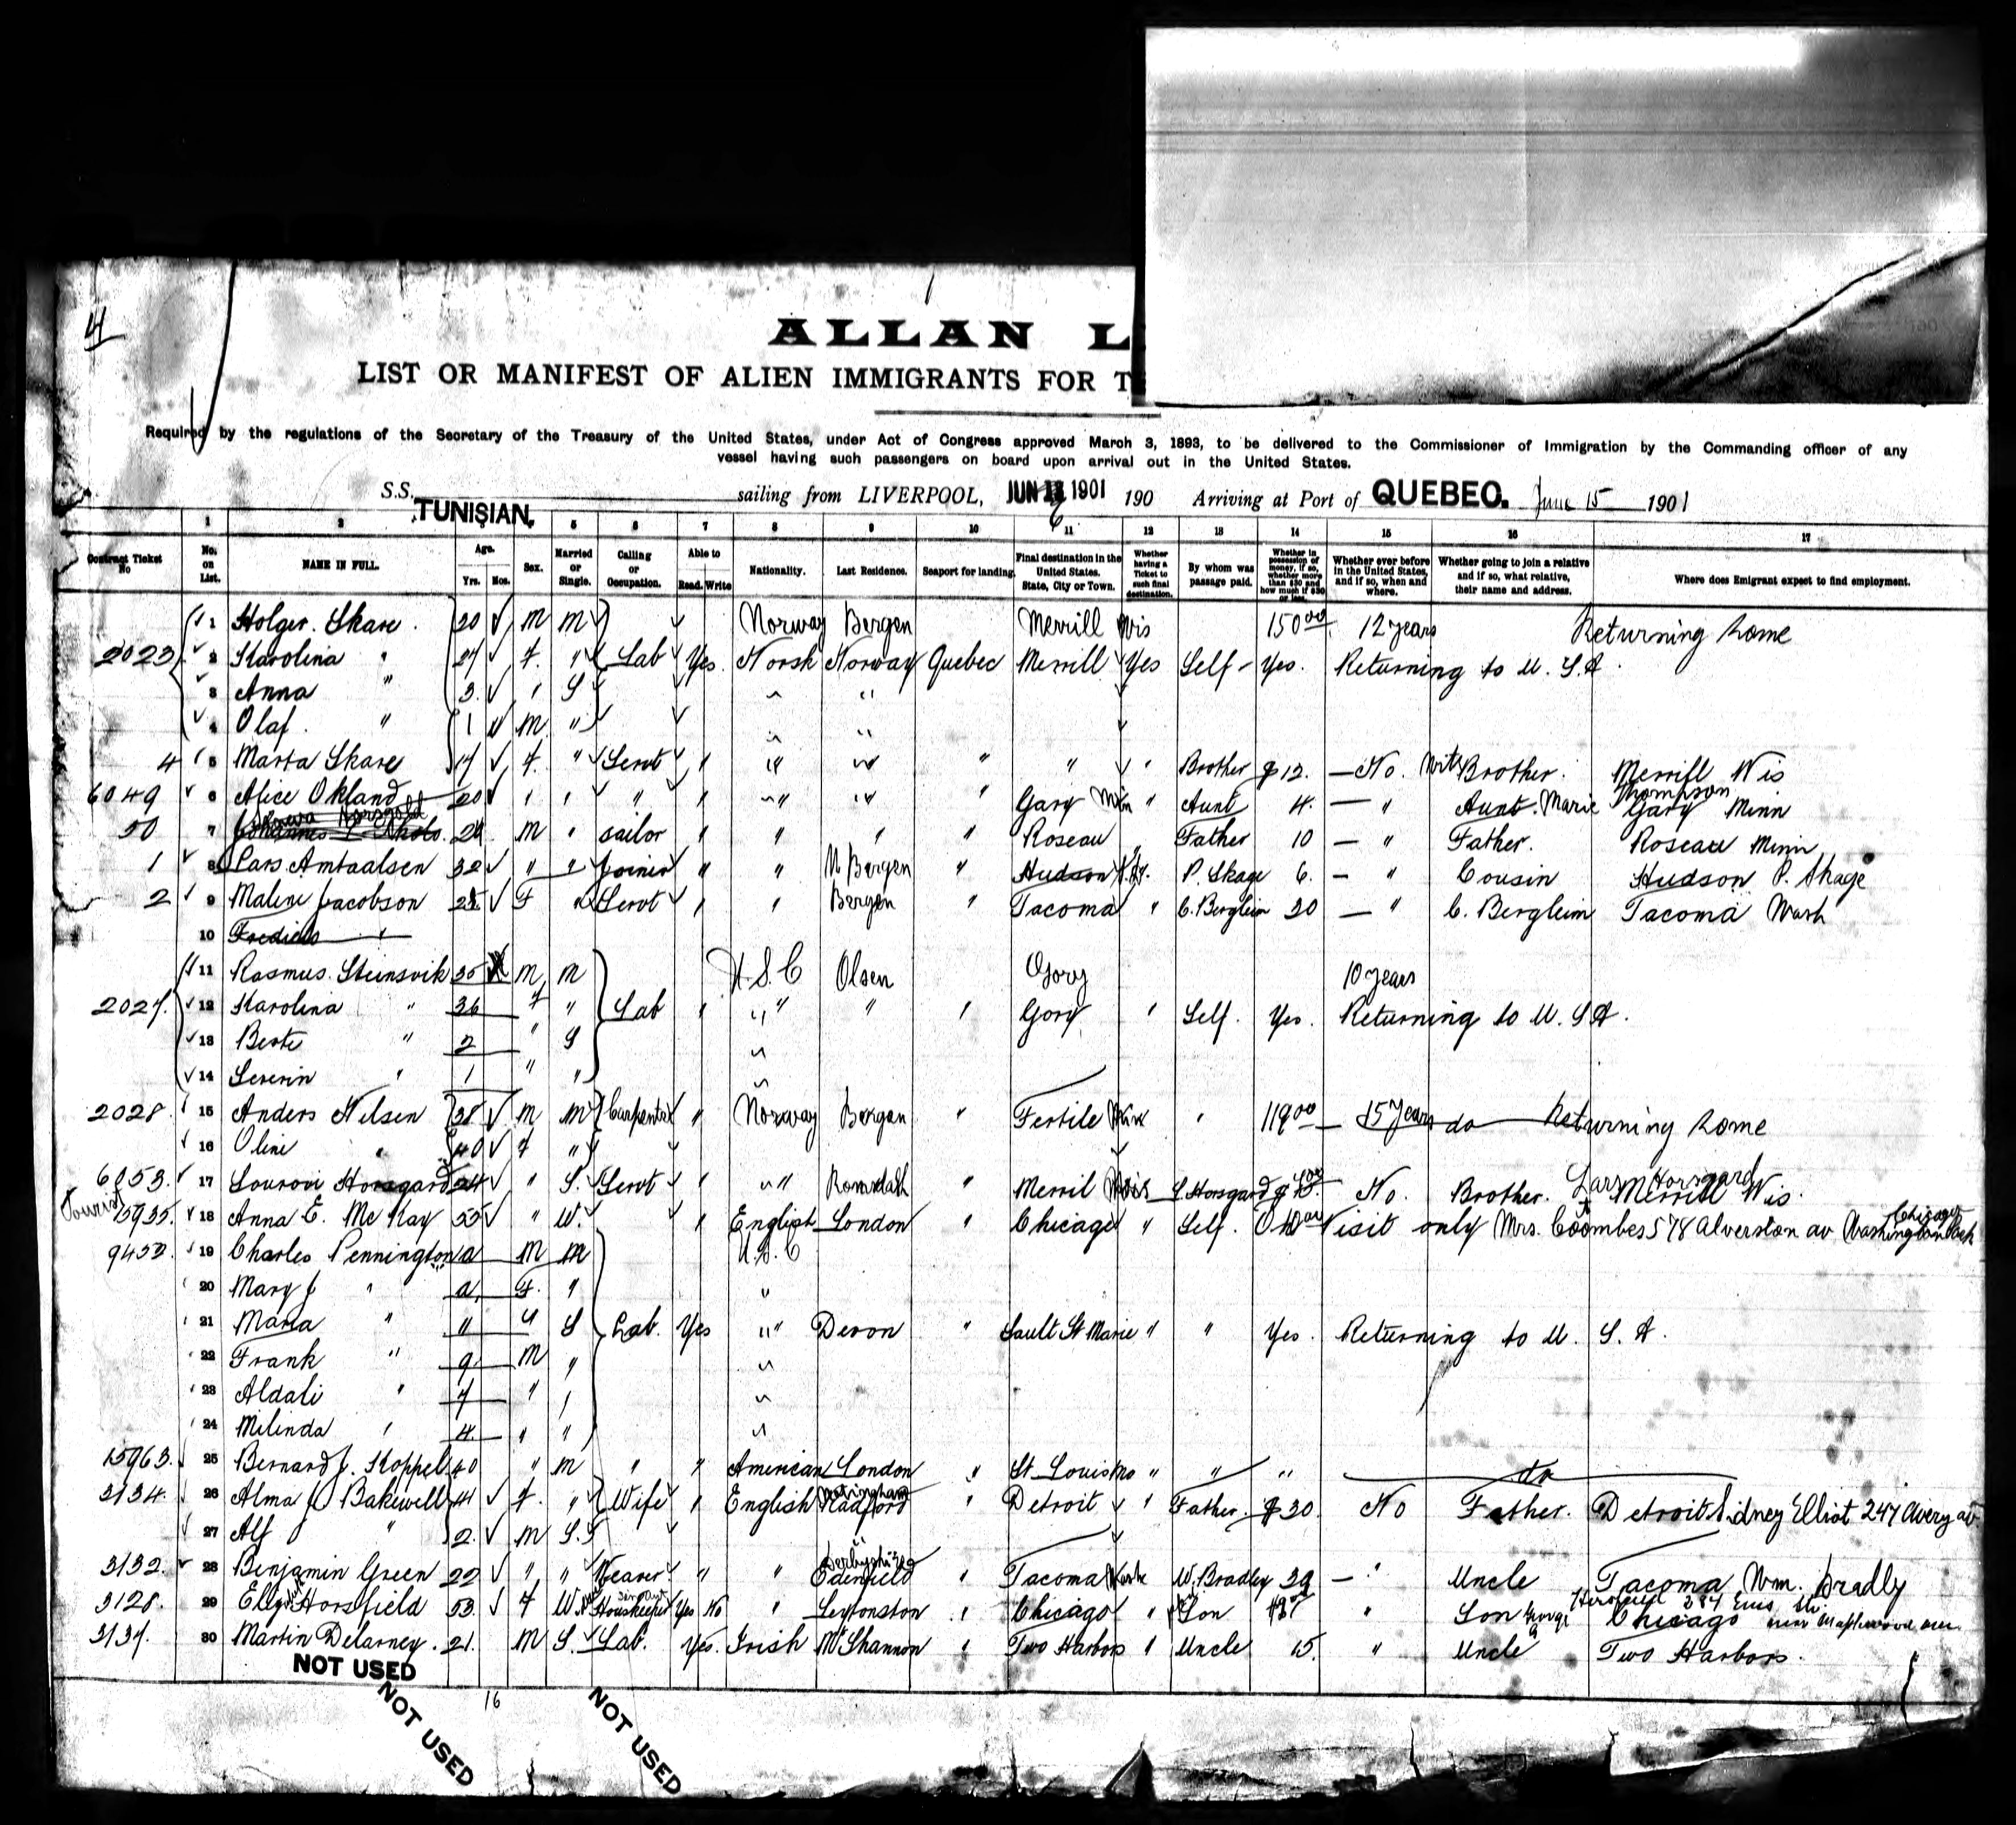 4
ALLAN L
LIST OR MANIFEST OF ALIEN IMMIGRANTS FOR T
Required by the regulations of the Secretary of the Treasury of the United States, under Act of Congress approved March 3, 1893, to be delivered to the Commissioner of Immigration by the Commanding officer of any
vessel having such passengers on board upon arrival out in the United States.
S.S. TUNISIAN. sailing from LIVERPOOL, JUN 1901 190 Arriving at Port of QUEBEC. June 15 1901
1 2 5 6 7 8 9 10 11 12 13 14 15 16 17
Contract Ticket No
No. on List.
NAME IN FULL.
Age. Yrs. Mos.
Sex.
Married or Single.
Calling or Occupation.
Able to Read. Write
Nationality.
Last Residence.
Seaport for landing.
Final destination in the United States. State, City or Town.
Whether having a Ticket to such final destination.
By whom was passage paid.
Whether in possession of money, if so, whether more than $30 and how much if $30 or less.
Whether ever before in the United States, and if so, when and where.
Whether going to join a relative and if so, what relative, their name and address.
Where does Emigrant expect to find employment.
1 Holger Skare 20 m m Norway Bergen Merrill Wis 150 00 12 years Returning home
2023 2 Karolina " f. " Lab Yes. Norsk Norway Quebec Merrill Yes Self - Yes. Returning to U.S.A.
3 Anna " 3 " S " "
4 Olaf " 1 m " " "
4 5 Marta Skare f. " Servt " " " " " " Brother $12. — No. Brother. Merrill Wis
6049 6 Alice Okland 20 " " " " " " " Gary Min " Aunt 4. — " Aunt. Marie Thompson Gary Minn
50 7 m " sailor " " " " Roseau " Father 10 — " Father. Roseau Minn
1 8 Lars Amtaalsen 32 " " Joiner " " Bergen " Hudson P. Skage 6. — " Cousin Hudson P. Skage
2 9 Maline Jacobson F " Servt " " Bergen " Tacoma " C. Bergleim 20 — " C. Bergleim Tacoma Wash
10 "
11 Rasmus Steinsvik 35 m m Olsen Gory 10 years
2027. 12 Karolina " 36 f " Lab " " " " Gory " Self. Yes. Returning to U.S.A.
13 Berte " 2 " S "
14 Severin " 1 " " "
2028. 15 Anders Nelsen 38 m m Carpenter " Norway Bergen " Fertile Min " 119 00 — 15 Years do Returning home
16 Oline " 40 f "
6053. 17 Horsgard 24 " S. Servt " " " Merril Wis S Horsgard No. Brother. Lars Horsgard Merrill Wis.
Tourist 15935. 18 Anna E. McKay 55 " W. " English London " Chicago " Self. Visit only Mrs. Coombes 578 Alverston av Washington Park Chicago
9452. 19 Charles Pennington a m m U.S.C
20 Mary J " a. F. " "
21 Maria " 11 " S Lab. Yes " Devon " Sault St Marie " " Yes. Returning to U.S.A.
22 Frank " 9 m " "
23 Aldali " 7 " " "
24 Milinda " 4 " " "
15963. 25 Bernard J. Koppel 40 " m " " American London " St Louis Mo " " " do
3134. 26 Alma J Bakewell f. " Wife " English Nottingham Radford " Detroit " Father. $30. No Father. Detroit Sidney Elliot 247 Avery av
27 Alf " 2. m S.
3132. 28 Benjamin Green 22 " " Weaver " " Derbyshire Edenfield " Tacoma Wash W. Bradley — " Uncle Tacoma Wm. Bradly
3128. 29 Horsfield 53. f W Housekeeper Yes No " Leytonston " Chicago " Son " Son George Chicago near Maplewood
3137. 30 Martin Delarney. 21. m S. Lab. Yes. Irish Mt Shannon " Two Harbors " Uncle 15. " Uncle Two Harbors.
NOT USED
16
NOT USED
NOT USED